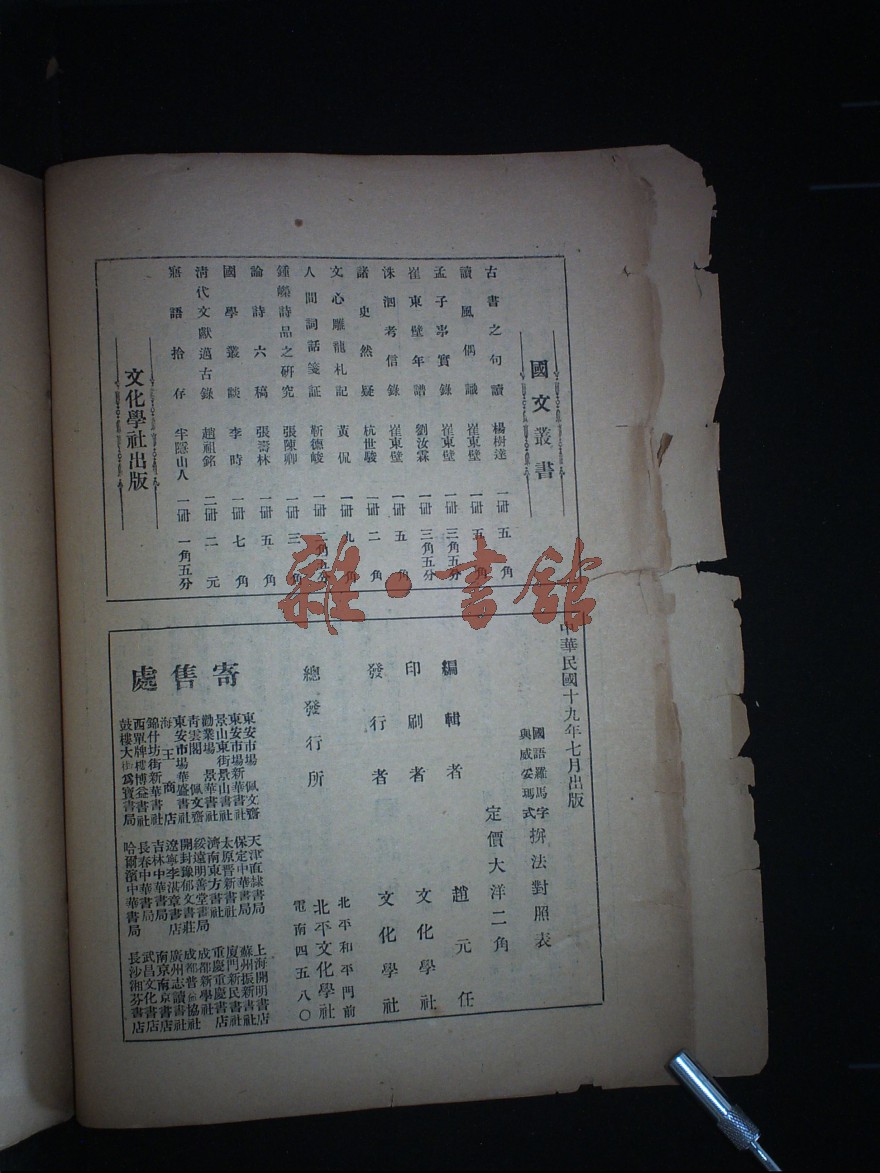 國文叢書
古書之句讀 楊樹達 一冊 五角
讀風偶識 崔東壁 一冊 五角
孟子事實錄 崔東壁 一冊 三角五分
崔東壁年譜 劉汝霖 一冊 三角五分
洙泗考信錄 崔東壁 一冊 五角
諸史然疑 杭世駿 一冊 二角
文心雕龍札記 黃侃 一冊 九角
人間詞話箋証 靳德峻 一冊 二角五分
鍾嶸詩品之研究 張陳卿 一冊 三角
論詩六稿 張壽林 一冊 五角
國學叢談 李時 一冊 七角
清代文獻邁古錄 趙祖銘 二冊 二元
寤語拾存 半隱山人 一冊 一角五分
文化學社出版
中華民國十九年七月出版
國語羅馬字
與威妥瑪式
拼法對照表
定價大洋二角
編輯者 趙元任
印刷者 文化學社
發行者 文化學社
總發行所
北平和平門前
北平文化學社
電南四五八〇
寄售處
東安市場佩文齋 天津直隸書局 上海開明書店
東安市場新華書社 保定中華書局 蘇州振新書社
景山東街景山書社 太原晋新書社 廈門新民書社
勸業場景華書社 濟南東方書社 重慶重慶書店
青雲閣佩文齋 綏遠明善堂書局 成都新學社
東安市場華盛書社 開封豫郁文書莊 成都普益協社
海王商店 遼寧李湛章書店 廣州志讀書社
錦什坊街新華書社 吉林中華書局 南京南京書店
西單牌樓博益書社 長春中華書局 武昌文化書店
鼓樓大街爲寶書局 哈爾濱中華書局 長沙湘芬書店
雜·書館